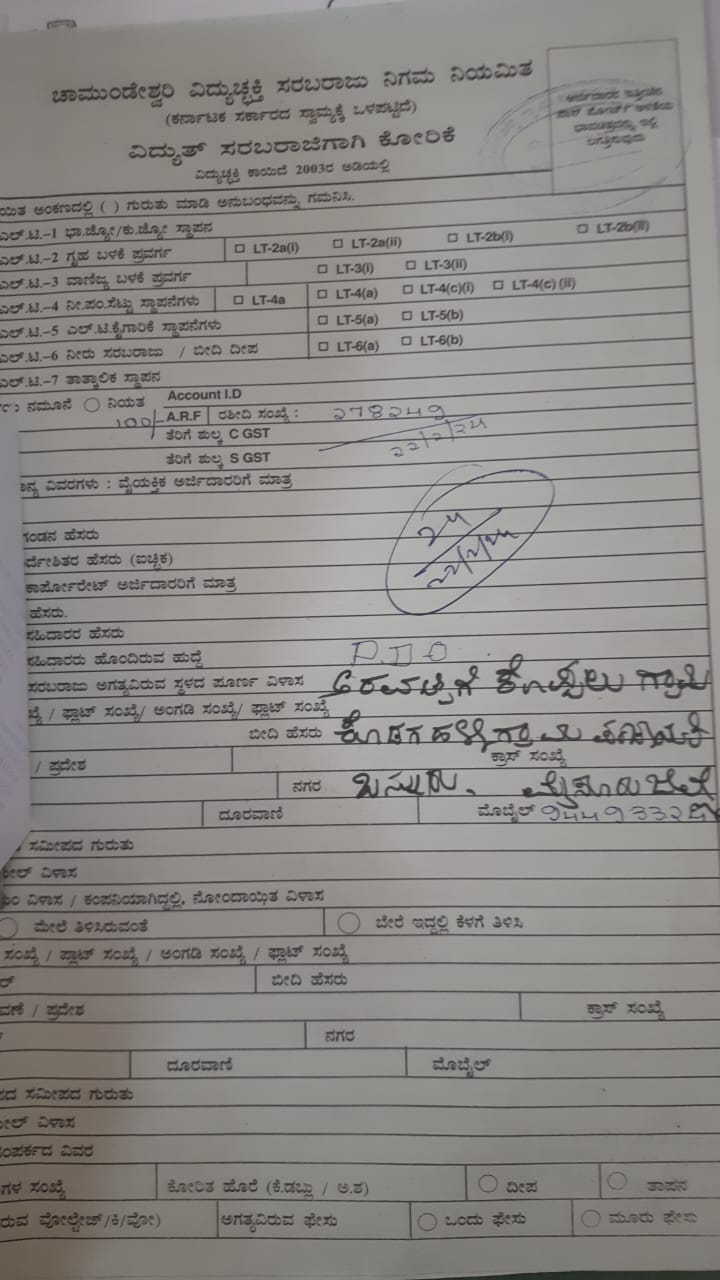 ಚಾಮುಂಡೇಶ್ವರಿ ವಿದ್ಯುಚ್ಛಕ್ತಿ ಸರಬರಾಜು ನಿಗಮ ನಿಯಮಿತ
(ಕರ್ನಾಟಕ ಸರ್ಕಾರದ ಸ್ವಾಮ್ಯಕ್ಕೆ ಒಳಪಟ್ಟಿದೆ)
ವಿದ್ಯುತ್ ಸರಬರಾಜಿಗಾಗಿ ಕೋರಿಕೆ
ವಿದ್ಯುಚ್ಛಕ್ತಿ ಕಾಯಿದೆ 2003ರ ಅಡಿಯಲ್ಲಿ
ಭಾವಚಿತ್ರವನ್ನು ಇಲ್ಲಿ
ಯಿತ ಅಂಕಣದಲ್ಲಿ ( ) ಗುರುತು ಮಾಡಿ ಅನುಬಂಧವನ್ನು ಗಮನಿಸಿ.
ಎಲ್.ಟಿ.–1 ಭಾ.ಜ್ಯೋ/ಕು.ಜ್ಯೋ ಸ್ಥಾಪನ
ಎಲ್.ಟಿ.–2 ಗೃಹ ಬಳಕೆ ಪ್ರವರ್ಗ LT-2a(i) LT-2a(ii) LT-2b(i) LT-2b(ii)
ಎಲ್.ಟಿ.–3 ವಾಣಿಜ್ಯ ಬಳಕೆ ಪ್ರವರ್ಗ LT-3(i) LT-3(ii)
ಎಲ್.ಟಿ.–4 ನೀ.ಪಂ.ಸೆಟ್ಟು ಸ್ಥಾಪನೆಗಳು LT-4a LT-4(a) LT-4(c)(i) LT-4(c) (ii)
ಎಲ್.ಟಿ.–5 ಎಲ್.ಟಿ.ಕೈಗಾರಿಕೆ ಸ್ಥಾಪನೆಗಳು LT-5(a) LT-5(b)
ಎಲ್.ಟಿ.–6 ನೀರು ಸರಬರಾಜು / ಬೀದಿ ದೀಪ LT-6(a) LT-6(b)
ಎಲ್.ಟಿ.–7 ತಾತ್ಕಾಲಿಕ ಸ್ಥಾಪನ
ನಮೂನೆ ನಿಯತ Account I.D
100/- A.R.F ರಶೀದಿ ಸಂಖ್ಯೆ : 278249
ತೆರಿಗೆ ಶುಲ್ಕ C GST 22/2/24
ತೆರಿಗೆ ಶುಲ್ಕ S GST
ನ್ಯ ವಿವರಗಳು : ವೈಯಕ್ತಿಕ ಅರ್ಜಿದಾರರಿಗೆ ಮಾತ್ರ
ಗಂಡನ ಹೆಸರು
ರ್ದೇಶಿತರ ಹೆಸರು (ಐಚ್ಛಿಕ)
ಕಾರ್ಪೋರೇಟ್ ಅರ್ಜಿದಾರರಿಗೆ ಮಾತ್ರ
ಹೆಸರು.
ಸಹಿದಾರರ ಹೆಸರು
ಸಹಿದಾರರು ಹೊಂದಿರುವ ಹುದ್ದೆ P.D.O
ಸರಬರಾಜು ಅಗತ್ಯವಿರುವ ಸ್ಥಳದ ಪೂರ್ಣ ವಿಳಾಸ ಕೊಪ್ಪಲು ಗ್ರಾಮ
ಖ್ಯೆ / ಫ್ಲಾಟ್ ಸಂಖ್ಯೆ/ ಅಂಗಡಿ ಸಂಖ್ಯೆ/ ಫ್ಲಾಟ್ ಸಂಖ್ಯೆ
ಬೀದಿ ಹೆಸರು ಕೊಡಗಹಳ್ಳಿ ಗ್ರಾಮ ಪಂಚಾಯತಿ
/ ಪ್ರದೇಶ ಕ್ರಾಸ್ ಸಂಖ್ಯೆ
ನಗರ ಬನ್ನೂರು. ಮೈಸೂರು ಜಿಲ್ಲೆ
ದೂರವಾಣಿ ಮೊಬೈಲ್
ಸಮೀಪದ ಗುರುತು
ಲ್ ವಿಳಾಸ
ವಿಳಾಸ / ಕಂಪನಿಯಾಗಿದ್ದಲ್ಲಿ, ನೋಂದಾಯಿತ ವಿಳಾಸ
ಮೇಲೆ ತಿಳಿಸಿರುವಂತೆ ಬೇರೆ ಇದ್ದಲ್ಲಿ ಕೆಳಗೆ ತಿಳಿಸಿ
ಸಂಖ್ಯೆ / ಪ್ಲಾಟ್ ಸಂಖ್ಯೆ / ಅಂಗಡಿ ಸಂಖ್ಯೆ / ಫ್ಲಾಟ್ ಸಂಖ್ಯೆ
ರ್ ಬೀದಿ ಹೆಸರು
ವಣೆ / ಪ್ರದೇಶ ಕ್ರಾಸ್ ಸಂಖ್ಯೆ
ನಗರ
ದೂರವಾಣಿ ಮೊಬೈಲ್
ಪದ ಸಮೀಪದ ಗುರುತು
ಲ್ ವಿಳಾಸ
ಸಂಪರ್ಕದ ವಿವರ
ಗಳ ಸಂಖ್ಯೆ ಕೋರಿತ ಹೊರೆ (ಕೆ.ಡಬ್ಲು / ಅ.ಶ) ದೀಪ ತಾಪನ
ರುವ ವೋಲ್ಟೇಜ್/ಕಿ/ವೋ) ಅಗತ್ಯವಿರುವ ಫೇಸು ಒಂದು ಫೇಸು ಮೂರು ಫೇಸು